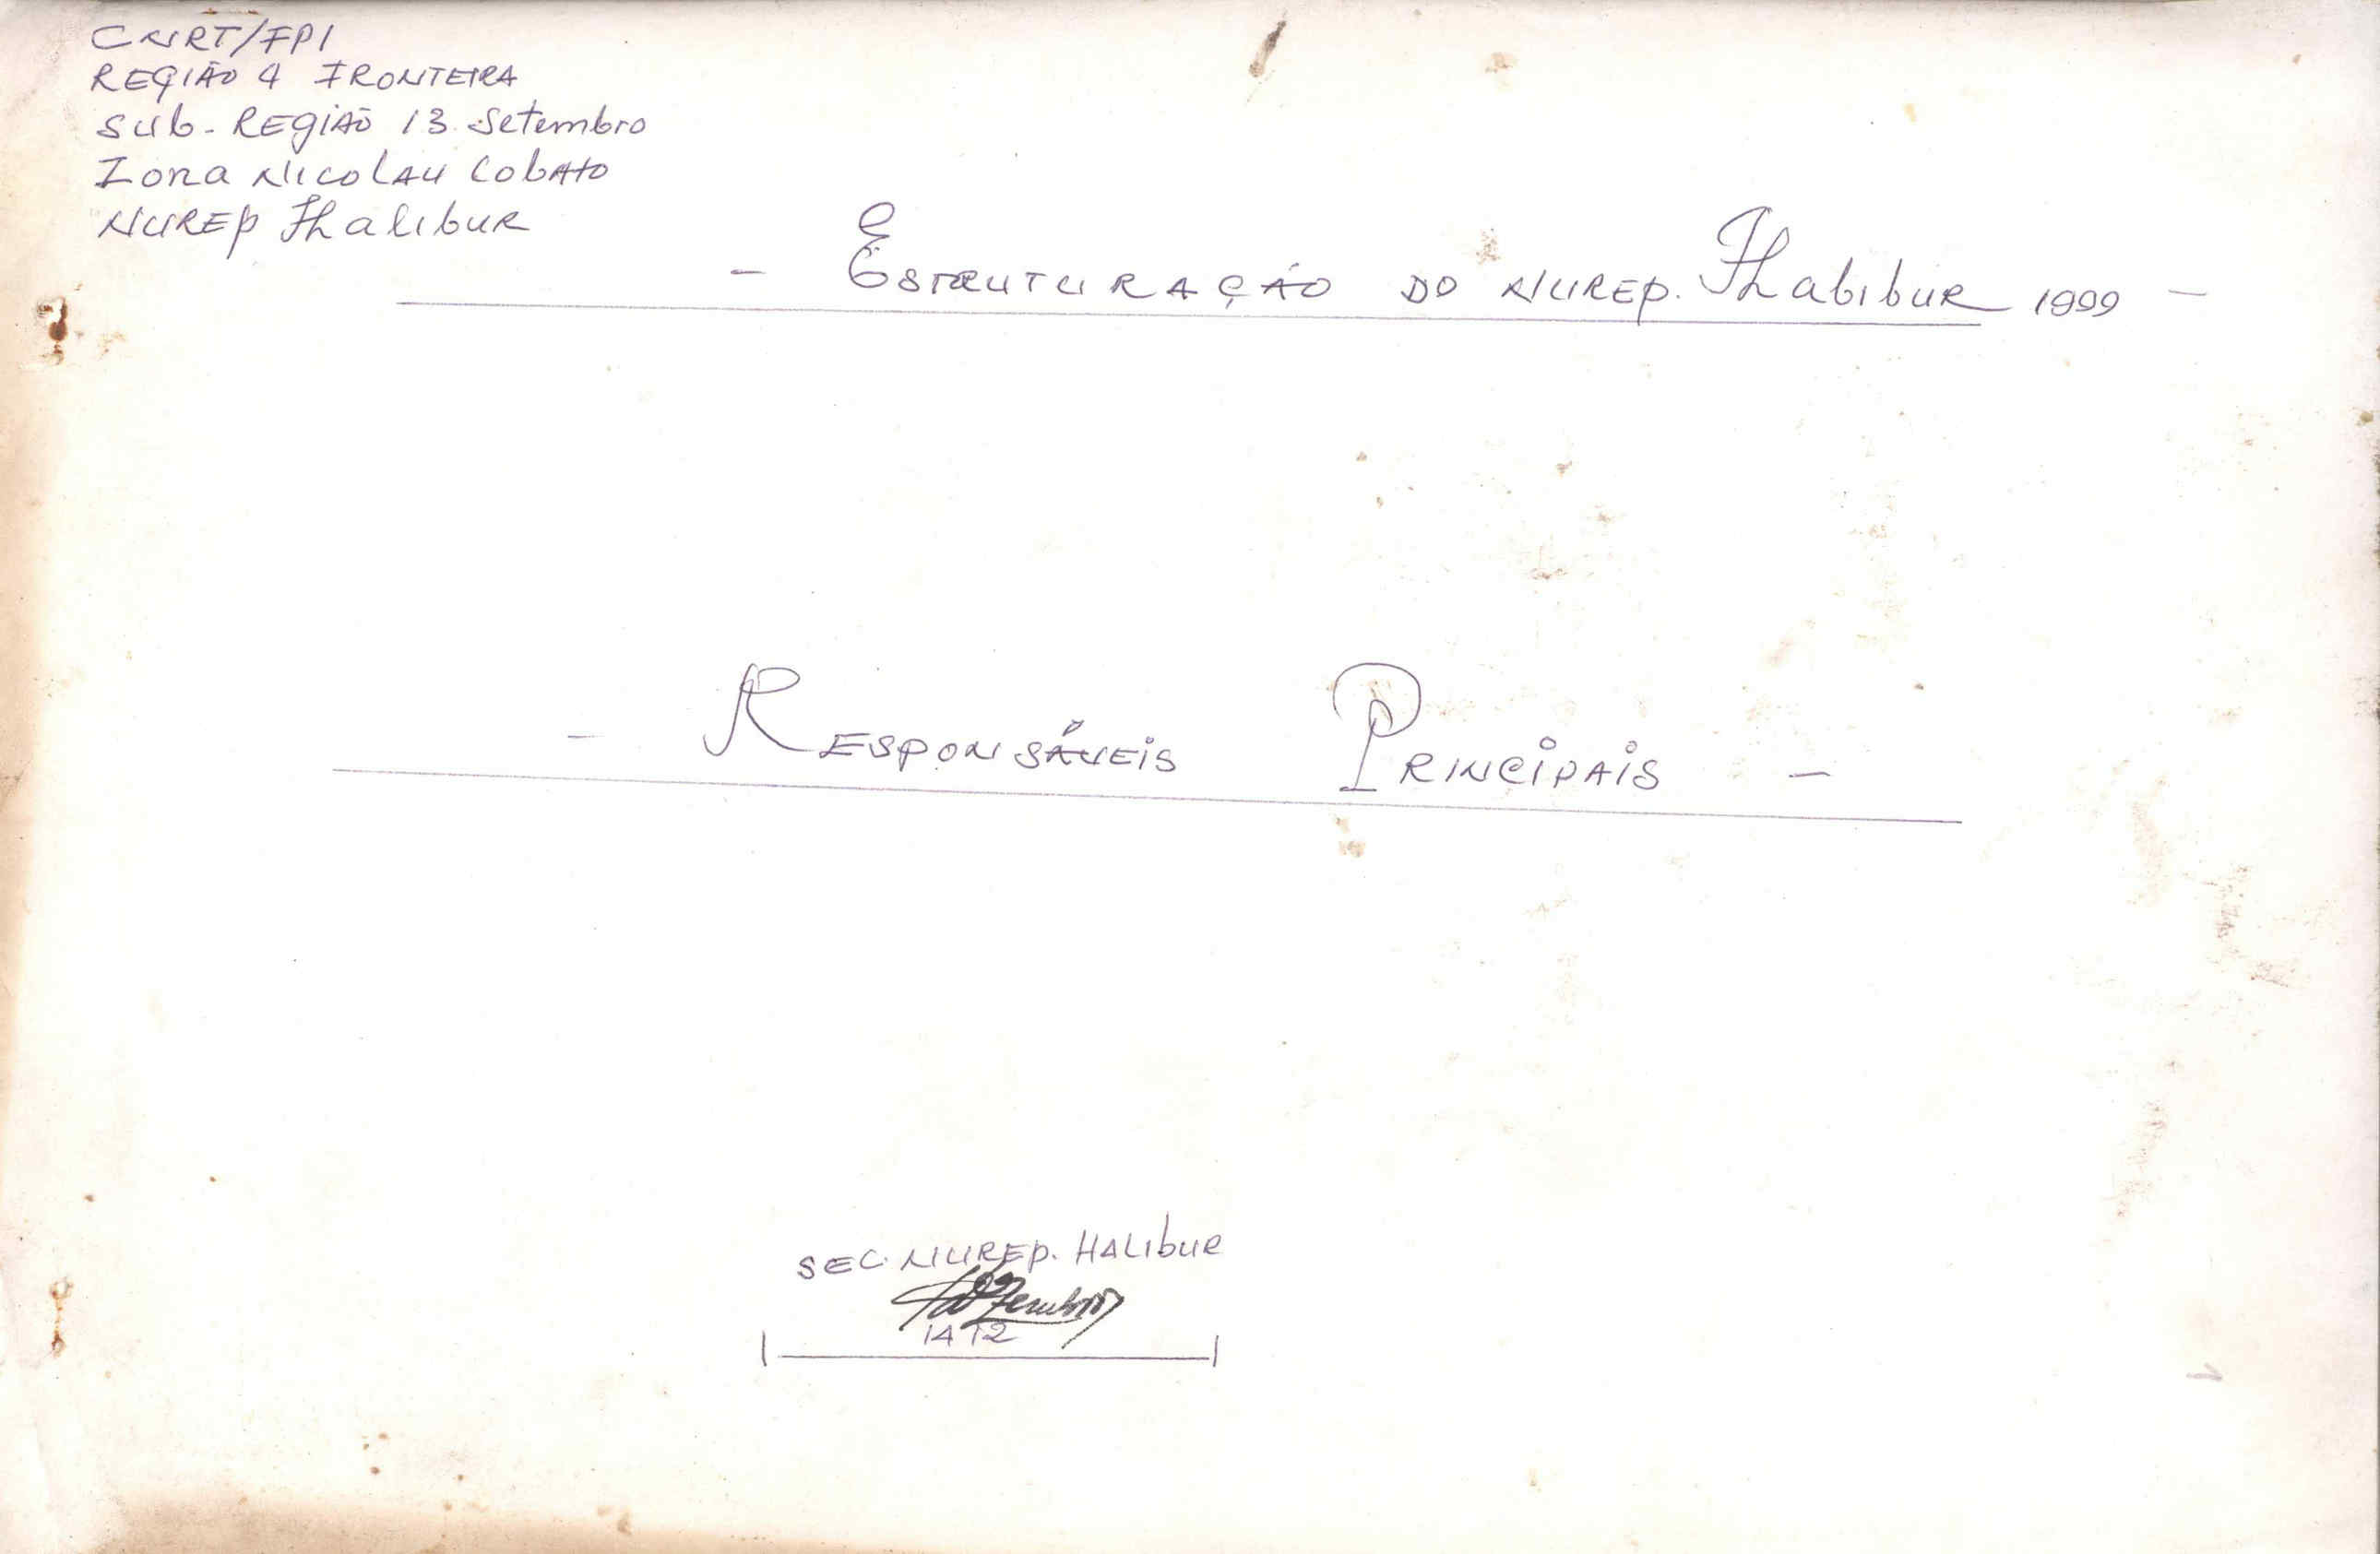 CNRT/FPI
REGIÃO 4 FRONTEIRA
Sub-REGIÃO 13 Setembro
Zona NICOLAU LobAto
NUREP HalibuR
- ESTRUTURAÇÃO DO NUREP. HalibuR 1999 -
- RESPONSÁVEIS PRINCIPAIS -
SEC. NUREP. HALibUR